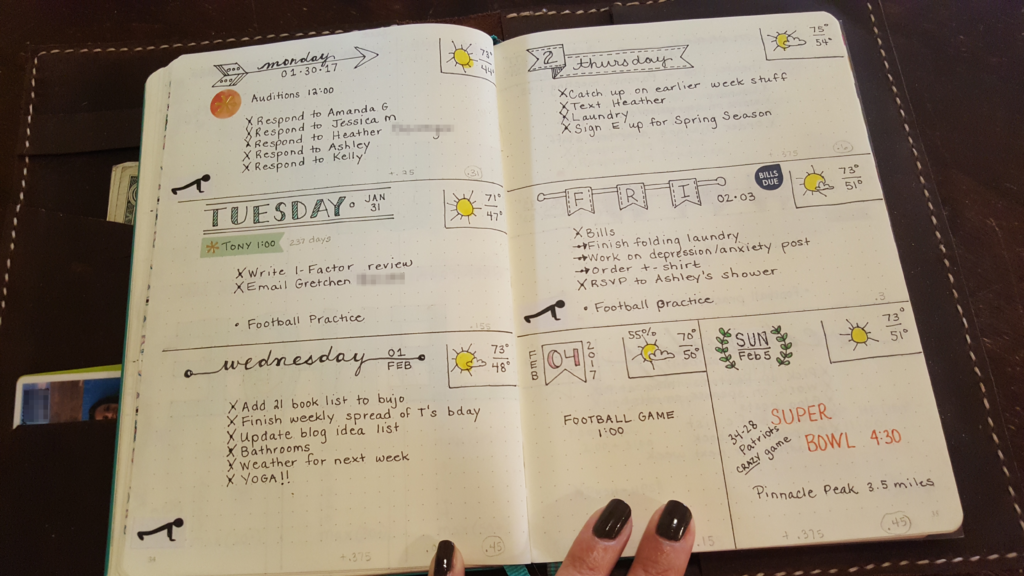 monday
01·30·17
73°
44°
Auditions 12:00
X Respond to Amanda G
X Respond to Jessica M
X Respond to Heather
X Respond to Ashley
X Respond to Kelly
+.75
TUESDAY
JAN
31
71°
47°
TONY 1:00
237 days
X Write 1-Factor review
X Email Gretchen
• Football Practice
wednesday
01
FEB
73°
48°
X Add 21 book list to bujo
X Finish weekly spread of T's bday
X Update blog idea list
X Bathrooms
X Weather for next week
X YOGA!!
+.375
.45
2
thursday
75°
54°
X Catch up on earlier week stuff
X Text Heather
X Laundry
X Sign E up for Spring Season
+.375
FRI
02·03
BILLS
DUE
73°
51°
X Bills
→ Finish folding laundry
→ Work on depression/anxiety post
→ Order t-shirt
X RSVP to Ashley's shower
• Football practice
.3
FEB
04
2017
55%
70°
50°
FOOTBALL GAME
1:00
.15
SUN
Feb 5
73°
51°
SUPER
BOWL 4:30
34-28
Patriots
CRAZY game
Pinnacle Peak 3.5 miles
+.375
.45